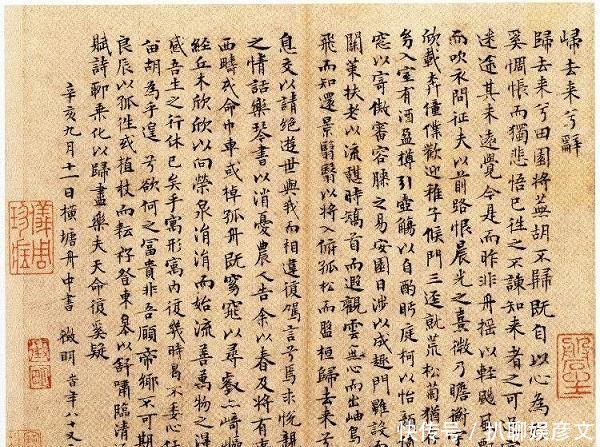 歸去来兮辭
歸去来兮田園将蕪胡不歸既自以心為
奚惆悵而獨悲悟已往之不諫知来者之可
迷途其未遠覺今是而昨非舟摇以輕颺
而吹衣問征夫以前路恨晨光之熹微乃瞻衡
欣載奔僮僕歡迎稚子候門三迳就荒松菊猶
幼入室有酒盈樽引壺觴以自酌眄庭柯以怡顔
窓以寄傲審容膝之易安園日涉以成趣門雖設而
關策扶老以流憩時矯首而遐觀雲無心而出岫鳥
飛而知還景翳翳以将入撫孤松而盤桓歸去来兮
息交以請絶遊世與我而相違復駕言兮焉求悦親
之情話樂琴書以消憂農人告余以春及将有
西疇或命巾車或棹孤舟既窈窕以尋壑亦崎嶇
經丘木欣欣以向榮泉涓涓而始流善萬物之得
感吾生之行休已矣乎寓形寓内復幾時曷不委心任
留胡為乎遑兮欲何之富貴非吾願帝鄉不可期
良辰以孤往或植杖而耘耔登東皋以舒嘯臨清
賦詩聊乘化以歸盡樂夫天命復奚疑
辛亥九月十二日横塘舟中書 徵明 時年八十又
儀周珍藏
徵明
快传号/扒聊娱彦文